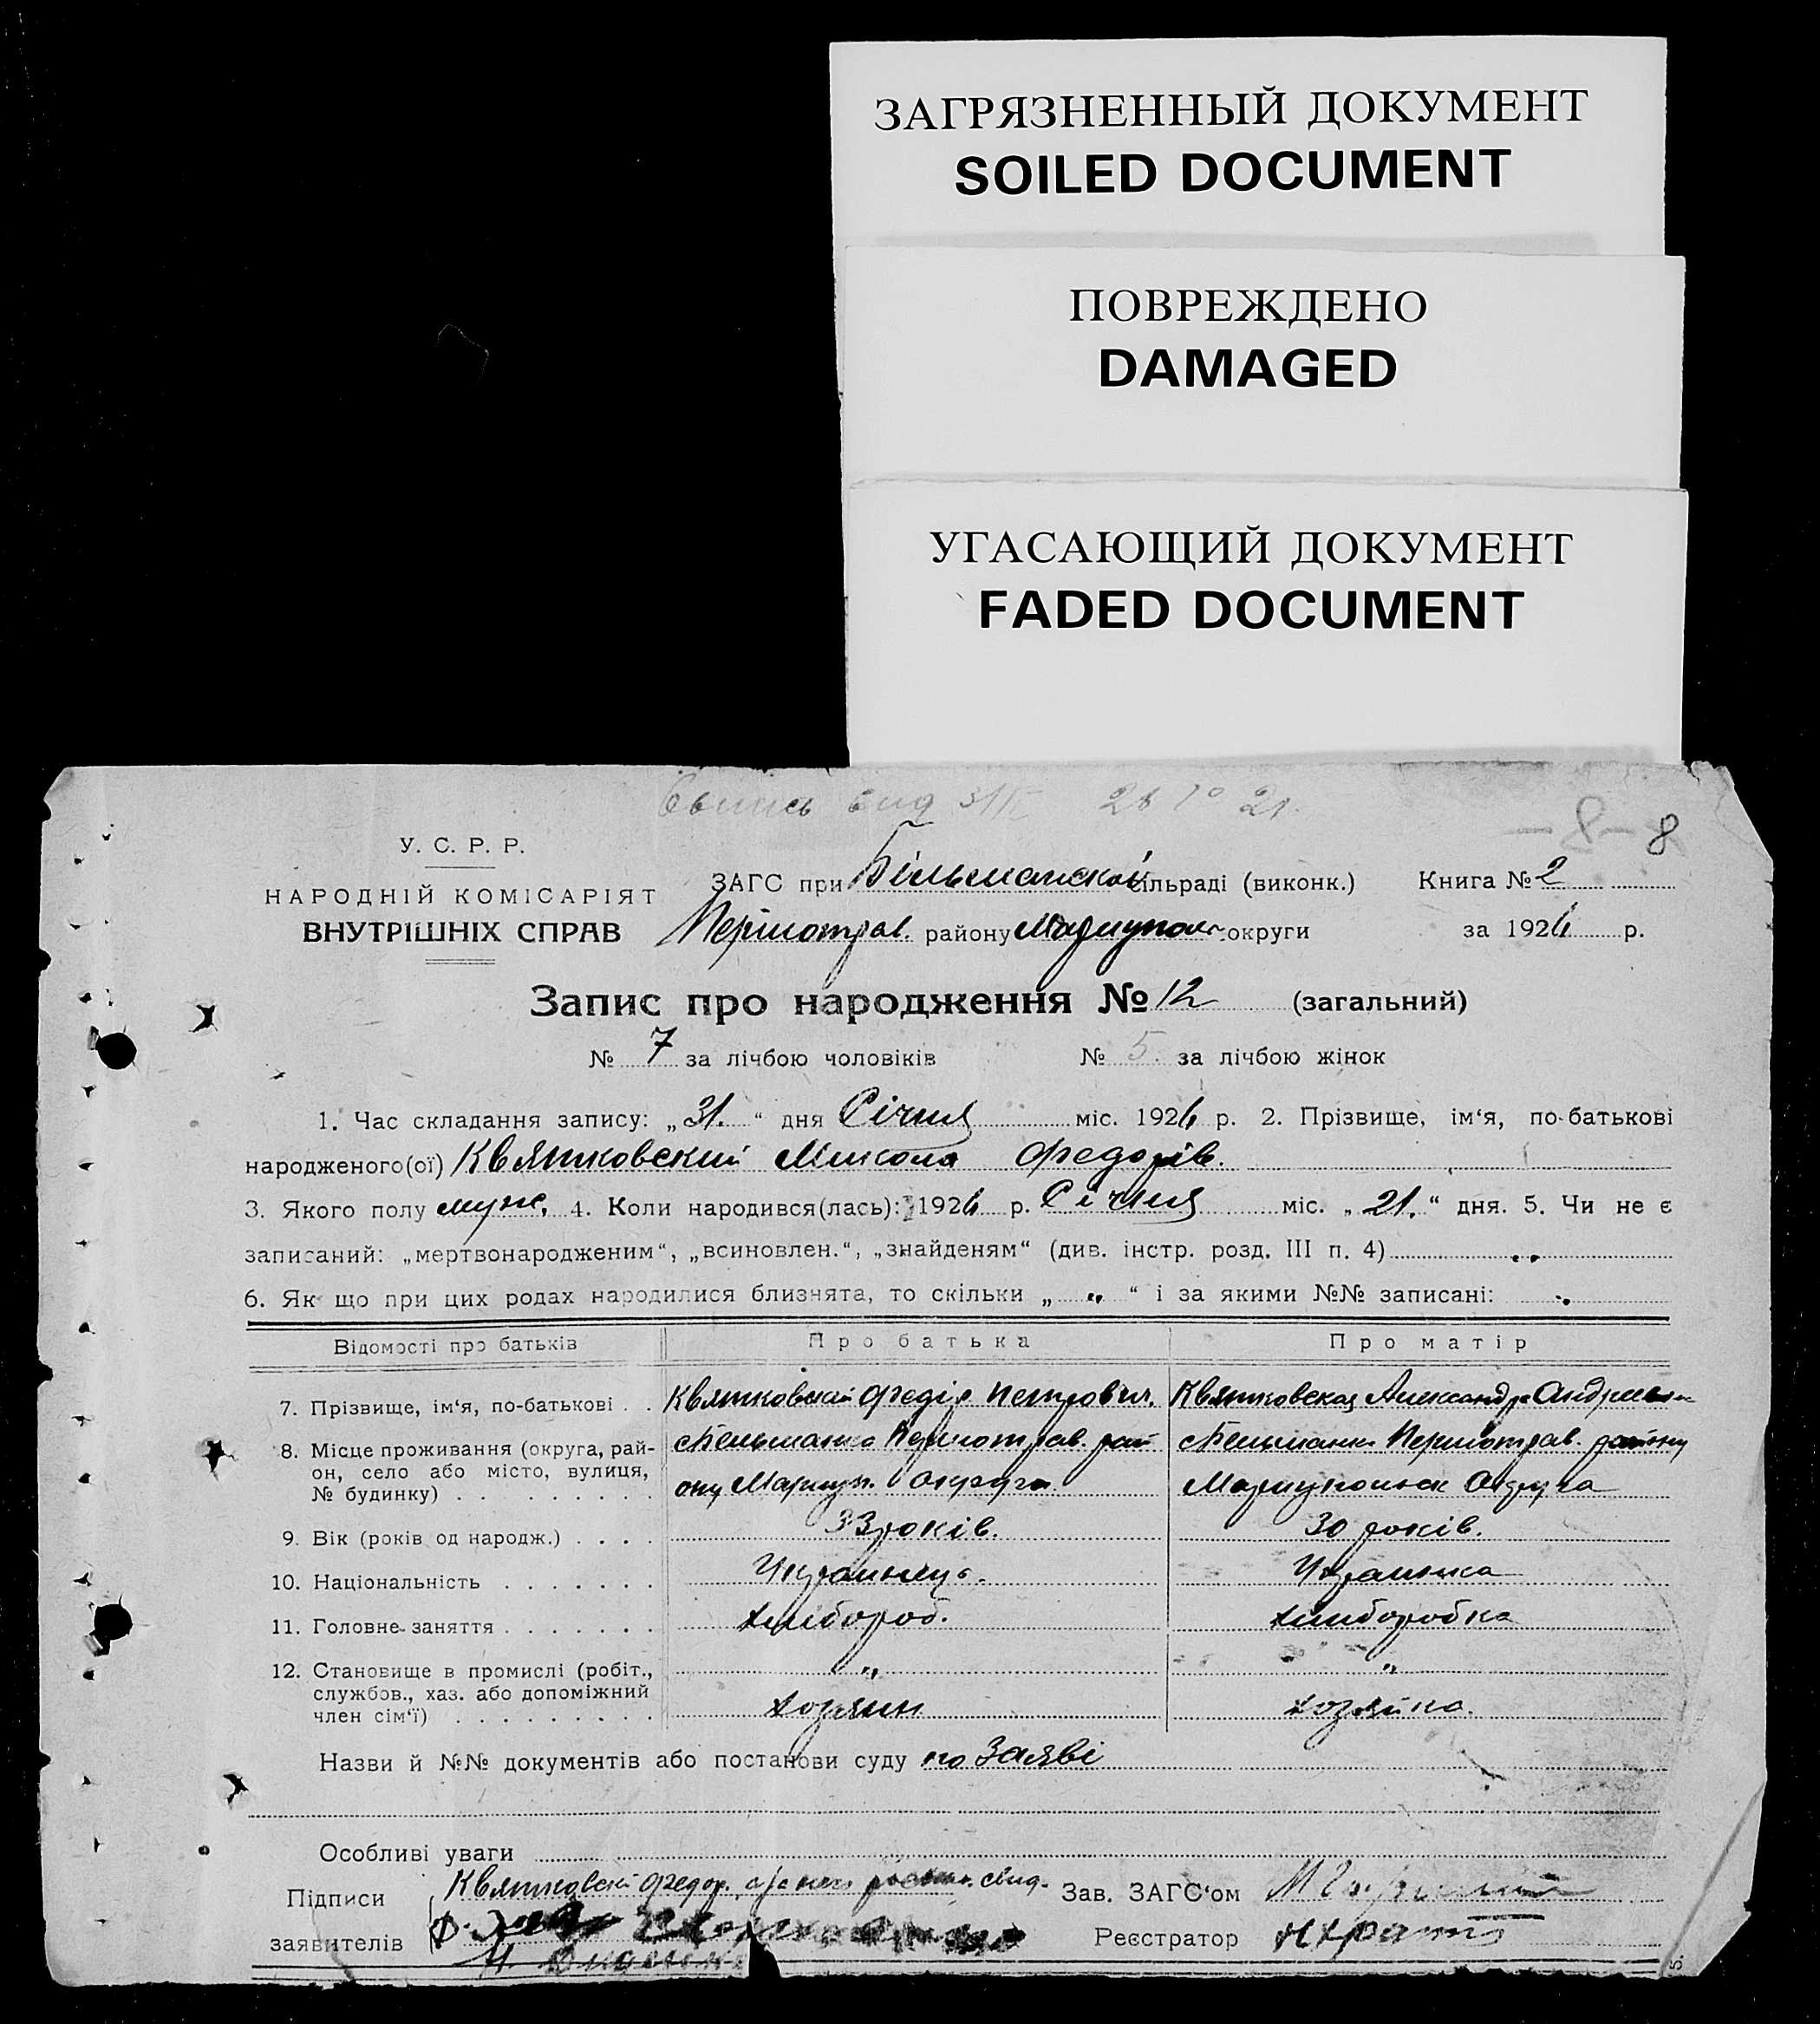 ЗАГРЯЗНЕННЫЙ ДОКУМЕНТ
SOILED DOCUMENT
ПОВРЕЖДЕНО
DAMAGED
УГАСАЮЩИЙ ДОКУМЕНТ
FADED DOCUMENT
-8- 8
У. С. Р. Р.
НАРОДНІЙ КОМІСАРІЯТ
ВНУТРІШНІХ СПРАВ
ЗАГС при Більманской сільраді (виконк.) Книга № 2
Першотрав. району Маріупол. округи за 1926 р.
Запис про народження № 12 (загальний)
№ 7 за лічбою чоловіків № 5. за лічбою жінок
1. Час складання запису: „31.“ дня Січня міс. 1926 р. 2. Прізвище, ім‘я, по-батькові
народженого(ої) Квятковский Микола Федорів.
3. Якого полу муж. 4. Коли народився(лась): 1926 р. Січня міс. „21.“ дня. 5. Чи не є
записаний: „мертвонародженим“, „всиновлен.“, „знайденям“ (див. інстр. розд. III п. 4) „
6. Як що при цих родах народилися близнята, то скільки „ „ “ і за якими №№ записані: „
Відомості про батьків Про батька Про матір
7. Прізвище, ім‘я, по-батькові . . Квятковский Федір Петрович. Квятковская Александра
8. Місце проживання (округа, рай- Бельманка Першотрав. рай Бельманка Першотрав. району
он, село або місто, вулиця,
№ будинку) . . . . . . . . ону Маріуп. Округа Округа
9. Вік (років од народж.) . . . . 33 років. 30 років.
10. Національність . . . . . . . Украинець. Украинка
11. Головне-заняття . . . . . . . Хлибороб. Хлиборобка
12. Становище в промислі (робіт., „ „
службов., хаз. або допоміжний
член сім‘ї) . . . . . . . . . Хозяин Хозяйка.
Назви й №№ документів або постанови суду по Заяві
Особливі уваги
Підписи Квятковский Федор. Зав. ЗАГС‘ом
заявителів Реєстратор